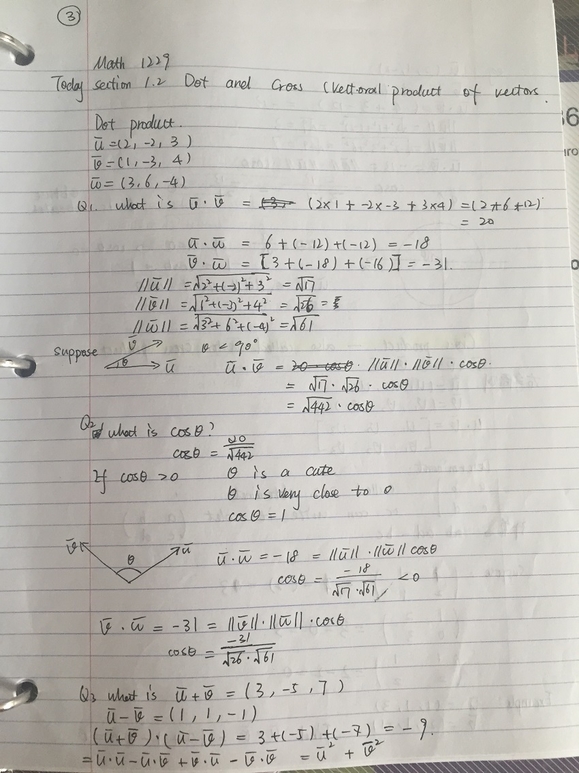 3
Math 1229
Today section 1.2 Dot and Cross (Vectoral product of vectors.
Dot product.
ū = (2, -2, 3)
v̄ = (1, -3, 4)
w̄ = (3, 6, -4)
Q1. what is ū · v̄ = (2×1 + -2×-3 + 3×4) = (2+6+12)
= 20
ū · w̄ = 6 + (-12) + (-12) = -18
v̄ · w̄ = [3 + (-18) + (-16)] = -31.
||ū|| = √2²+(-2)²+3² = √17
||v̄|| = √1²+(-3)²+4² = √26 =
||w̄|| = √3²+6²+(-4)² = √61
suppose v̄ θ ū θ < 90° ū · v̄ = ||ū|| · ||v̄|| · cosθ.
= √17 · √26 · cosθ
= √442 · cosθ
Q2 what is cosθ?
cosθ = 20/√442
If cosθ > 0 θ is a cute
θ is very close to 0
cosθ = 1
v̄ θ ū ū · w̄ = -18 = ||ū|| · ||w̄|| cosθ
cosθ = -18/√17 · √61 < 0
v̄ · w̄ = -31 = ||v̄|| · ||w̄|| · cosθ
cosθ = -31/√26 · √61
Q3 what is ū + v̄ = (3, -5, 7)
ū - v̄ = (1, 1, -1)
(ū + v̄) · (ū - v̄) = 3 + (-5) + (-7) = -9.
= ū · ū - ū · v̄ + v̄ · ū - v̄ · v̄ = ū² + v̄²